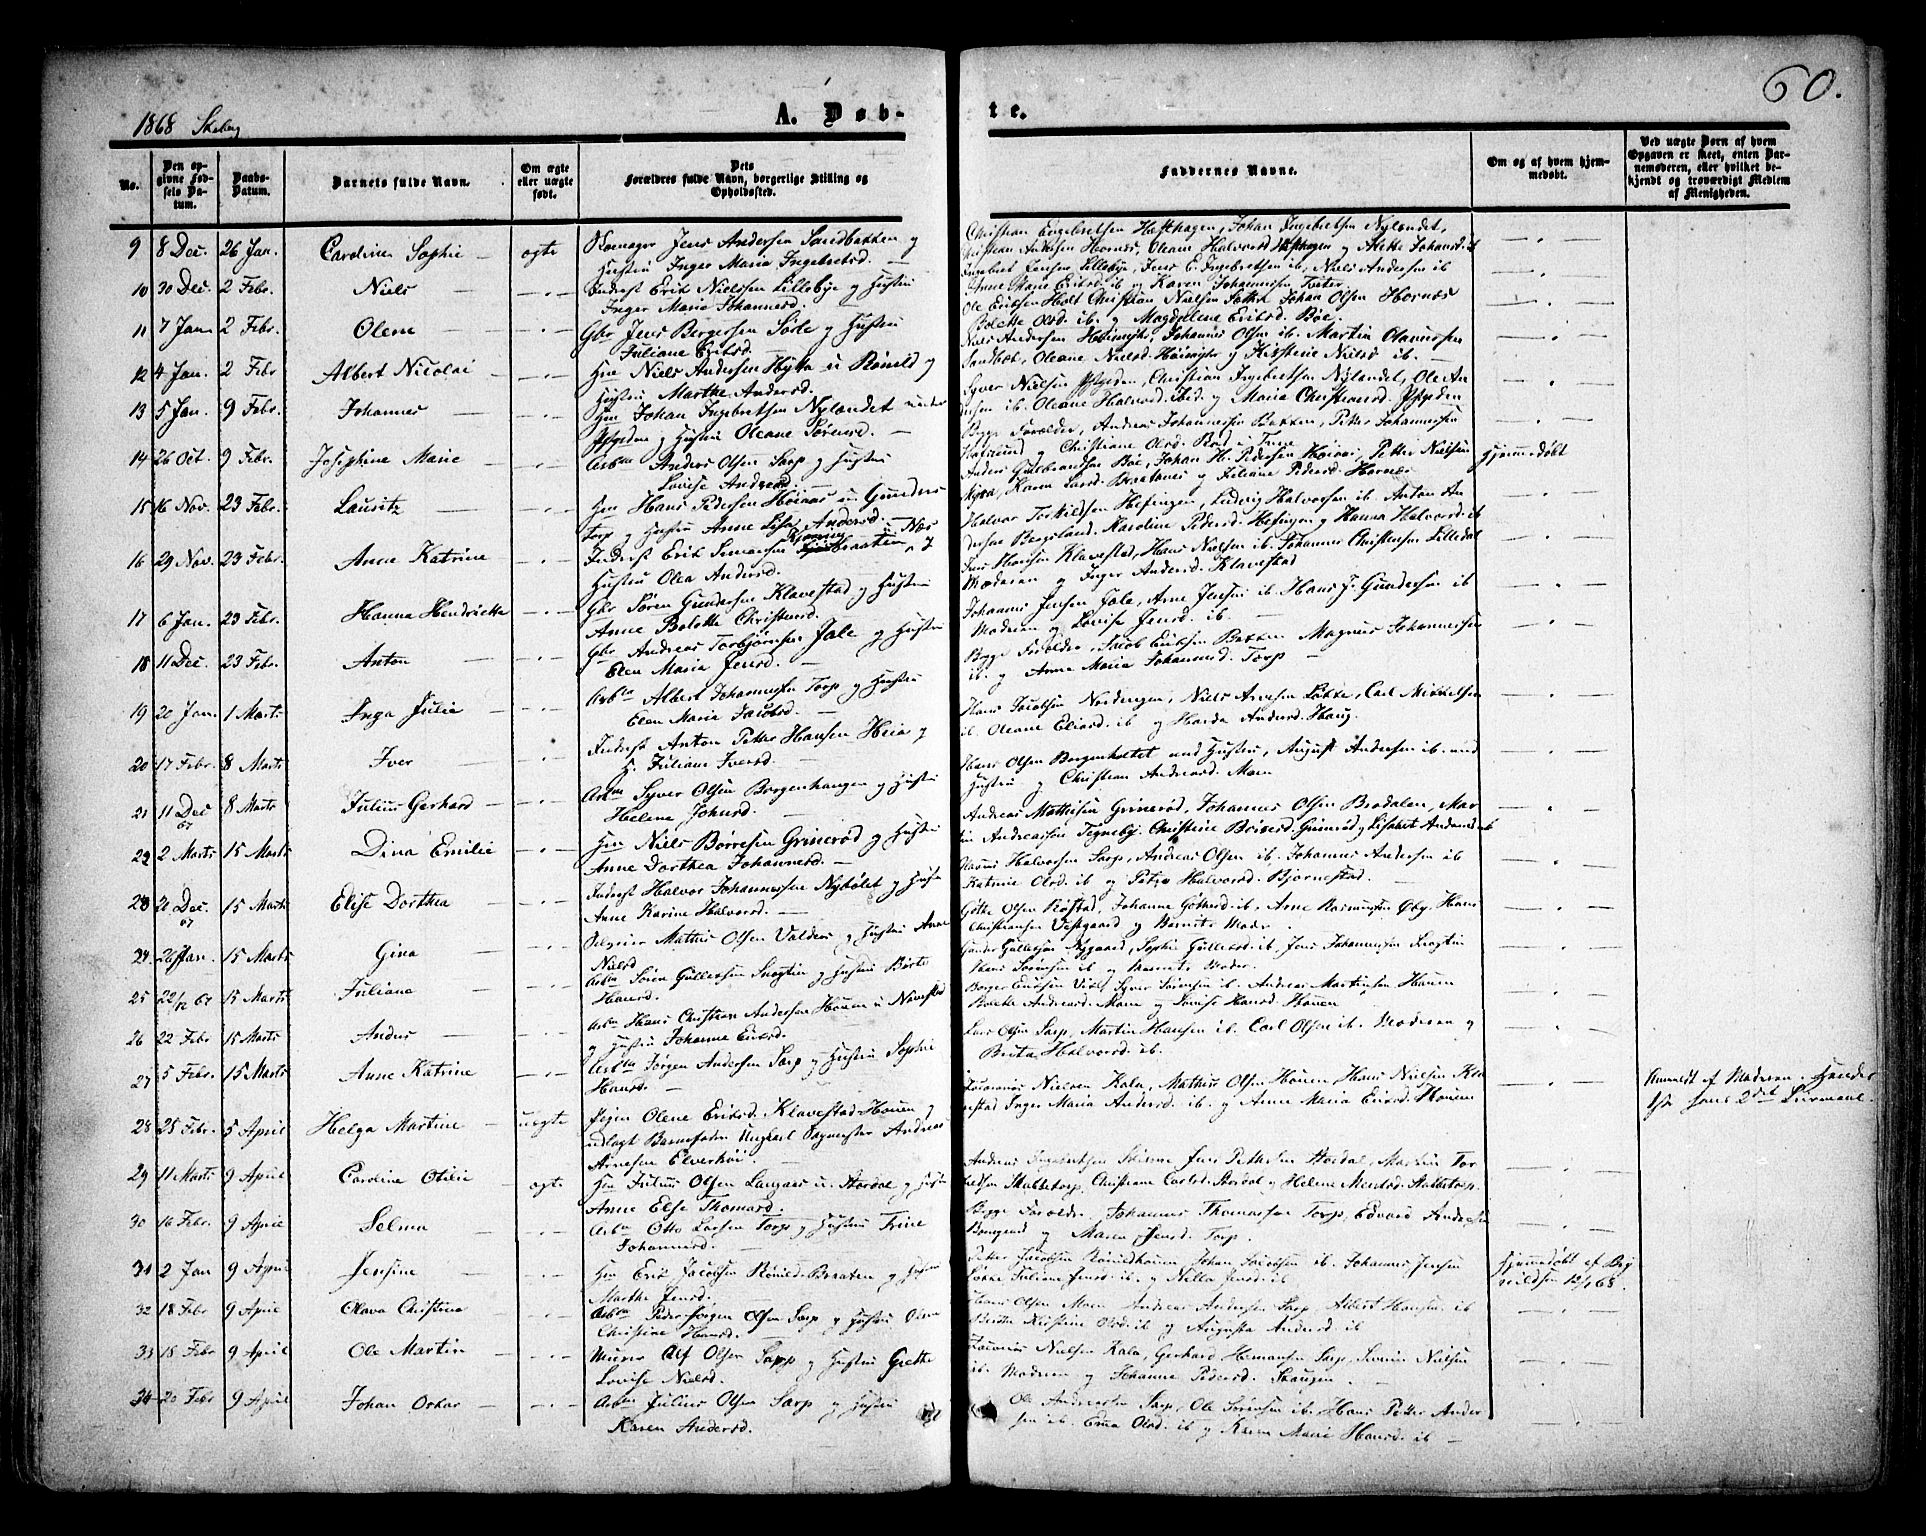 1868 Skeberg
A. Døb-
te.
60.
No.
Den op-
givne Fød-
sels Da-
tum.
Daabs-
Datum.
Barnets fulde Navn.
Om ægte
eller uægte
født.
Dets
Forældres fulde Navn, borgerlige Stilling og
Opholdssted.
Faddernes Navne.
Om og af hvem hjem-
medøbt.
Ved uægte Børn af hvem
Opgaven er skeet, enten Bar-
nemoderen, eller hvilket be-
kjendt og troværdigt Medlem
af Menigheden.
9 8 Dec. 26 Jan. Cardine Sophie — ægte Jens Andersen Sandbakken og
Hustru Inger Maria Ingebretsd. —
Christian Engebretsen Hasthagen, Johan Ingebretsen Nylandet,
Christian Andersen Hornæs, Oleane Halvorsd. Hasthagen og Alette Johansd. ib
10 30 Dec. 2 Febr. Niels — Inderst Erik Nielsen Lillebye og Hustru
Inger Maria Johannesd.
Ingebret Jensen Lillebye, Jens E. Ingebretsen ib, Niels Andersen ib
Anne Marie Eriksd. ib og Karen Johannesen
11 7 Jan. 2 Febr. Olene — Gbr Jens Bergersen Sørle og Hustru
Juliane Eriksd. —
Ole Eriksen Holt Christian Nielsen Johan Olsen Hornæs
Bolette Olsd. ib. og Magdalene Eriksd. Bøe.
12 4 Jan. 2 Febr Albert Nicolai — Hm Niels Andersen Hytta u Rømeld og
Hustru Marthe Andersd.
Niels Andersen Høimyhr, Johannes Olsen ib. Martin Olaunssen
Sandbæk, Oleane Nielsd. Høimyhr og Kirstine Nielsd ib. —
13 5 Jan. 9 Febr. Johannes — Hm Johan Ingebretsen Nylandet under
og Hustru Oleane Sørensd. —
Syver Nielsen Christian Ingebretsen Nylandet, Ole An
dersen ib. Oleane Halvorsd. ibid. og Maria Christiansd.
14 26 Oct. 9 Febr. Josephine Marie — Arbm Anders Olsen Sarp og Hustru
Lovise Andreasd. —
Begge Forældre, Andreas Johannesen Bakken, Petter Johannesen
og Christiane Olsd. Rød i Tune
hjemmedøbt
15 16 Nov. 23 Febr. Lauritz — Hm Hans Pedersen Høiaas u. Gunders
torp og Hustru Anne Lisa Andersd.
Anders Gulbrandsen Bøe, Johan H. Pedersen Høiaas, Petter Nielsen
Karen Larsd. Braatanes og Juliane Pedersd. Hornæs
16 29 Nov. 23 Febr. Anne Katrine — Inderst Erik Simensen
Hustru Olea Andersd.
Halvor Torkildsen Hefingen, Ludvig Halvorsen ib. Anton An
dersen Bergsland, Karoline Pedersd. Hefingen og Hanna Halvorsd. ib
17 6 Jan. 23 Febr. Hanna Hendriette Gbr Søren Gundersen Klavestad og Hustru
Anne Bolette Christensd.
Klavestad, Hans Nielsen ib. Johannes Christensen Lilledal
Moderen og Inger Andersd. Klavestad
18 11 Dec. 23 Febr. Anton — Gbr Andreas Torbjørnsen Jale og Hustru
Elen Maria Jensd. —
Johannes Jensen Jale, Arne Jensen ib. Hans J. Gundersen ib
Moderen og Lovise Jensd. ib. —
19 20 Jan. 1 Marts Inga Julie — Arbm Albert Johannesen Torp og Hustru
Elen Marie Jacobsd. —
Begge Forældre, Jacob Eriksen Bakken Magnus Johannesen
ib. og Anne Maria Johannesd. Torp —
20 17 Febr. 8 Marts Iver — Inderst Anton Petter Hansen Heia og
H. Juliane Iversd. —
Hans Jacobsen Nordengen, Niels Arnesen Løkke, Carl Mikkelsen
ib. Oleane Eliasd. ib og Andersd. Haug.
21 11 Dec 67 8 Marts Julius Gerhard — Arbm Syver Olsen Borgenhaugen og Hustru
Helene Johnsd. —
Hans Olsen Borgenholtet med Hustru, August Andersen ib. med
Hustru og Christian Andreasd. Moen
22 2 Marts 15 Marts Dina Emilie — Hm Niels Børresen Grinerød og Hustru
Anne Dorthea Johannesd. —
Andreas Mathisen Grinerød, Johannes Olsen Brodalen, Mar
tin Andreassen Tegneby, Christine Grinerød og Lisabet Andersd. ib
23 21 Dec. 67 15 Marts Elise Dorthea — Inderst Halvor Johannessen Nybølet og Hustru
Anne Karine Halvorsd. —
Halvorsen Sarp, Andreas Olsen ib. Johannes Andersen ib
Katrine Olsd. ib og Halvorsd. Bjørnestad. —
24 26 Jan. 15 Marts Gina — Mathis Olsen Valders og Hustru Anne
Nielsd
Gothe Olsen Røstad, Johanne ib. Arne Rasmussen Hans
Christiansen Vestgaard og Barnets Moder
25 22/12 67 15 Marts Juliane — Arbm Søren Gullersen Skogtin og Hustru Berte
Hansd.
Gunder Gullesen Nygaard, Sophie Gullesd. ib. Jens Johannesen Skogtin
Hans Sørensen ib og Barnets Moder.
26 22 Febr 15 Marts Anders — Arbm Hans Christian Andersen Houen u Navestad
og Hustru Johanne Eriksd. —
Borger Syver Sørensen ib. Andreas Martinsen Houen
Bolette Andreasd. Moen og Lovise Hansd. Houen
27 5 Febr. 15 Marts Anne Katrine — Arbm Jørgen Andersen Sarp og Hustru Sophie
Hansd. —
Lars Olsen Sarp, Martin Hansen ib. Carl Olsen ib. Moderen og
Brita Halvorsd. ib.
28 25 Febr. 5 April Helga Martine — uægte Pigen Olene Eriksd. Klavestad Houen og
udlagt Barnefader Ungkarl Andreas
Arnesen Elverhøi. —
Nielsen Kala, Mathis Olsen Houen Hans Nielsen Kla
vestad Inger Maria Andersd. ib. og Anne Maria Eriksd. Houen
Anmeldt af Moderen.
29 11 Marts 9 April Caroline Otilie — ægte Hm Julius Olsen Langaas u. Stordal og Hustru
Anne Else Thomasd. —
Andreas Jens Pettersen Stordal, Martin Tor
Skaltetorp, Christiane Carlsd. Stordal og Helene Skaltetorp
30 16 Febr. 9 April Selma — Arbm Otto Larsen Torp og Hustru Trine
Johannesd. —
Begge Forældre, Johannes Thomassen Torp, Edvard Andersen
og Maren Jensd. Torp.
31 2 Jan 9 April Jensine — Hm Erik Jacobsen Rømeld-Braaten og Hustru
Marthe Jensd.
Petter Jacobsen Johan Jacobsen ib. Johannes Jensen
Løkke Juliane Jensd. ib. og Nilla Jensd. ib
hjemmedøbt af
12/1 68.
32 18 Febr 9 April Olava Christina Arbm Peder Jørgen Olsen Sarp og Hustru
Christine Hansd. —
Hans Olsen Moen Andreas Andersen Sarp Albert Hansen ib
Berthe Kirstine Olsd. ib og Augusta Andersd ib
33 18 Febr 9 April Ole Martin — Murer Alf Olsen Sarp og Hustru Grethe
Lovise Nielsd.
Nielsen Kala, Gerhard Hermansen Sarp, Severin Nielsen
ib. Moderen og Johanne Pedersd. Skaugen —
34 20 Febr 9 April Johan Oskar — Arbm Julius Olsen Sarp og Hustru
Karen Andersd.
Ole Andreassen Sarp, Ole Sørensen ib. Hans Petter Ander
sen ib. Emma Olsd. ib og Karen Marie Hansd. ib —